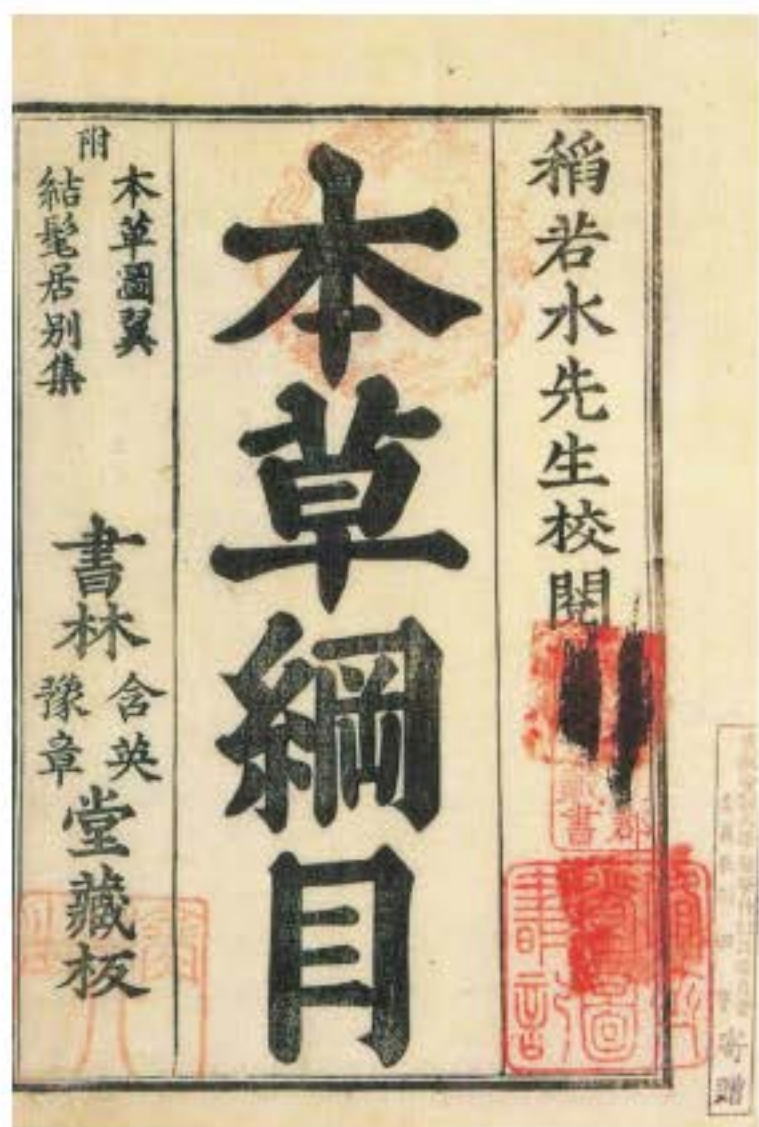 稻若水先生校閱
本草綱目
附
本草圖翼
結髦居別集
書林
含英
豫章
堂藏板
圖
書記
藏書
寄贈